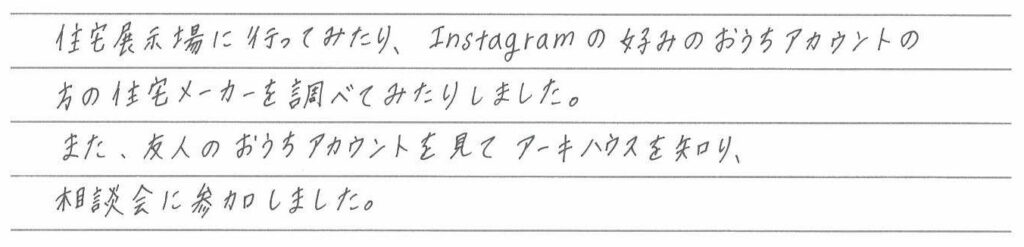 住宅展示場に行ってみたり、Instagramの好みのおうちアカウントの
方の住宅メーカーを調べてみたりしました。
また、友人のおうちアカウントを見てアーキハウスを知り、
相談会に参加しました。